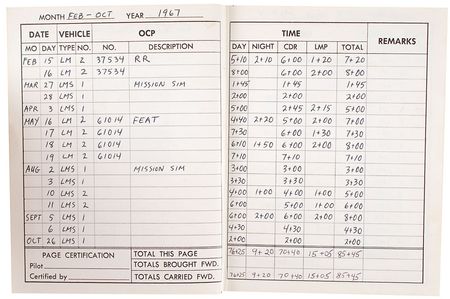 MONTH FEB - OCT YEAR 1967
DATE VEHICLE OCP TIME REMARKS
MO DAY TYPE NO. NO. DESCRIPTION DAY NIGHT CDR LMP TOTAL
FEB 15 LM 2 37534 RR 5+10 2+10 6+00 1+20 7+20
16 LM 2 37534 8+00 6+00 2+00 8+00
MAR 27 LMS 1 MISSION SIM 1+45 1+45 1+45
28 LMS 1 2+00 2+00 2+00
APR 3 LMS 1 5+00 2+45 2+15 5+00
MAY 16 LM 2 61014 FEAT 4+40 2+20 5+00 2+00 7+00
17 LM 2 61014 7+30 6+00 1+30 7+30
18 LM 2 61014 6+10 1+50 6+00 2+00 8+00
19 LM 2 61014 7+10 7+10 7+10
AUG 2 LMS 1 MISSION SIM 3+00 3+00 3+00
3 LMS 1 3+30 3+30 3+30
10 LMS 2 4+00 1+00 4+00 1+00 5+00
11 LMS 2 2+00
SEPT 5 LMS 1 6+00 2+00 6+00 2+00 8+00
6 LMS 1 4+30 4+30 4+30
OCT 26 LMS 1 2+00 2+00 2+00
PAGE CERTIFICATION TOTAL THIS PAGE 76+25 9+20 70+40 15+05 85+45
Pilot TOTALS BROUGHT FWD.
Certified by TOTALS CARRIED FWD. 76+25 9+20 70+40 15+05 85+45